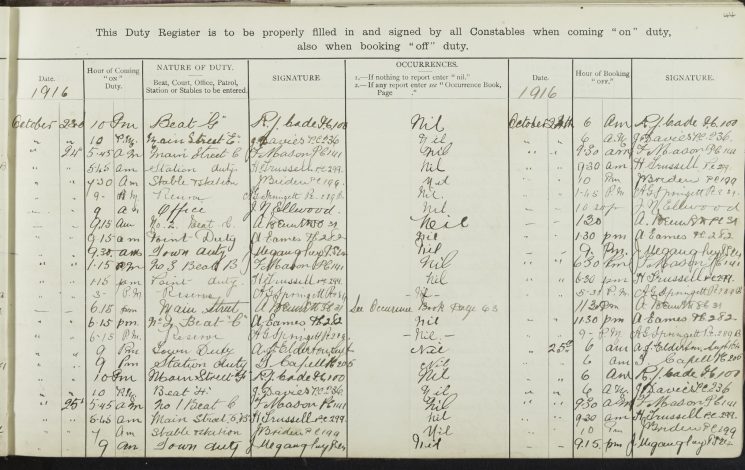 44
This Duty Register is to be properly filled in and signed by all Constables when coming "on" duty,
also when booking "off" duty.
Date. Hour of Coming "on" Duty. NATURE OF DUTY. Beat, Court, Office, Patrol, Station or Stables to be entered. SIGNATURE. OCCURRENCES. 1.—If nothing to report enter "nil." 2.—If any report enter "Occurrence Book, Page ." Date. Hour of Booking "OFF." SIGNATURE.
1916 1916
October 23rd 10 Pm Beat G R.J. Cade P.C. 100 Nil October 24th 6 Am R.J. Cade P.C. 100
" " 10 P.M. Main Street E. J Davies P.C. 236 Nil " " 6 A.M. J Davies P.C. 236
" 24 5.45 A m Main Street C F Mason P.C. 141 Nil " " 9.30 am F Mason P.C. 141
" " 5.45 am Station duty H Trussell P.C. 299 Nil " " 9.30 am H Trussell P.C. 299
" " 7.30 Am Stable & Station J Briden P.C. 199 Nil " " 10 Pm J Briden P.C. 199
" " 9 - A.M. Reserve A G Springett P.C. Nil " " 1.45 P.M. A G Springett P.C.
" " 9 am Office J. N Ellwood. Nil " " J. N Ellwood
" " 9.15 Am No. 2. Beat C. A P.C. 31 Nil " " 1.30 A P.C. 31
" " 9.15 am Point Duty A Eames P.C. 282 Nil " " 1.30 pm A Eames P.C. 282
" " 9.30 am Town duty J Megaughey Nil " " 9 Pm. J Megaughey
" " 1.15 pm No 3 Beat B F Mason P.C. 141 Nil " " 6.30 Pm F Mason P.C. 141
" " 1.15 pm Point duty H Trussell P.C. 299 Nil " " 6.30 pm H Trussell P.C. 299
" " 3 - P.M. Reserve A G Springett Nil " " P.M. A G Springett
" " 6.15 pm Main Street A P.C. 31 See Occurence Book Page 43 " " 11.30 Pm A P.C. 31
" " 6.15 pm. Beat C A. Eames P.C. 282 Nil " " 11.30 pm A Eames P.C. 282.
" " 6.15 P.M. Reserve A G Springett Nil. " " 9 - P.M. A G Springett
" " 9 Pm Town Duty A. J. Elderton Nil " 25th 6 am A J Elderton
" " 9 Pm Station duty Capell P.C. 206 Nil " " 6 am Capell P.C. 206
" " 10 Pm Main Street F R.J. Cade P.C. 100 Nil " " 6 Am R.J. Cade P.C. 100
" " 10 P.M. Beat H. J Davies P.C. 236. Nil " " 6 A.M. J Davies P.C. 236
" 25th 5.45 A m No 1 Beat C F Mason P.C. 141 Nil " " 9.30 A.m F Mason P.C. 141
" " 5.45 am Main Street H Trussell P.C. 299. Nil " " 9.30 am H Trussell P.C. 299
" " 7 Am Stable & Station J Briden P.C. 199 Nil " " 10 Pm J Briden P.C. 199
" " 9 am Town duty J Megaughey Nil " " 9.15 pm J Megaughey